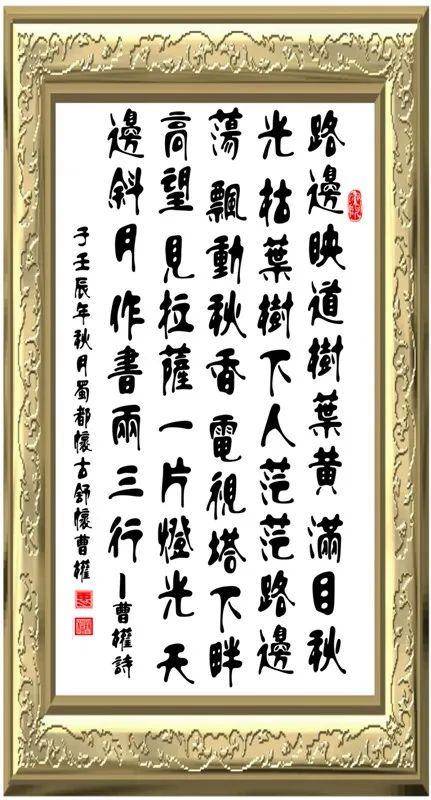 路邊映道樹葉黃滿目秋
光枯葉樹下人茫茫路邊
蕩飄動秋香電視塔下畔
高望見拉薩一片燈光天
邊斜月作書兩三行—曹權詩
于壬辰年秋月蜀都懷古舒懷曹權